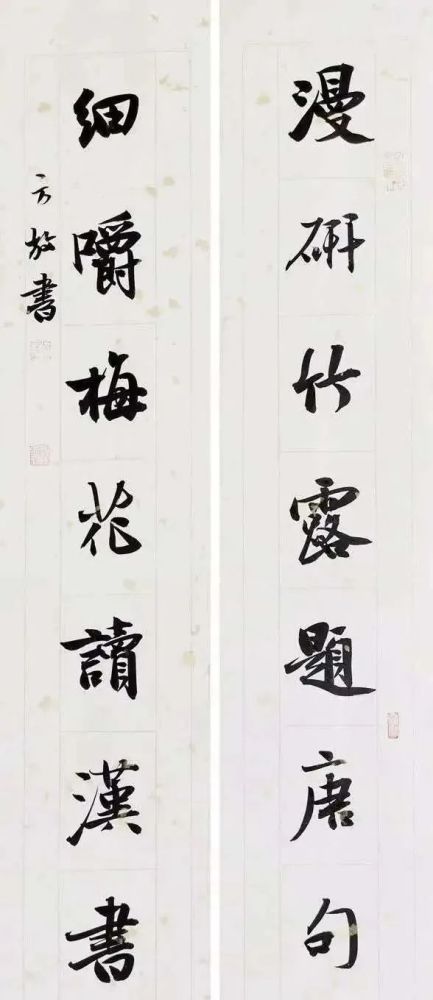 漫研竹露題唐句
細嚼梅花讀漢書
方放書